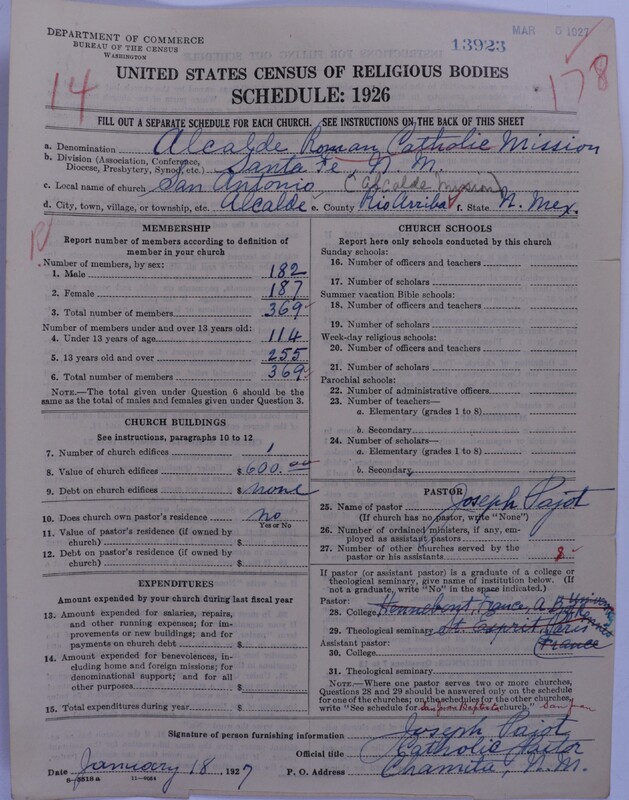 DEPARTMENT OF COMMERCE
BUREAU OF THE CENSUS
WASHINGTON
MAR 5 1927
13923
14
178
UNITED STATES CENSUS OF RELIGIOUS BODIES
SCHEDULE: 1926
FILL OUT A SEPARATE SCHEDULE FOR EACH CHURCH. SEE INSTRUCTIONS ON THE BACK OF THIS SHEET
a. Denomination Alcalde Roman Catholic Mission
b. Division (Association, Conference, Diocese, Presbytery, Synod, etc.) Santa Fe, N. M.
c. Local name of church San Antonio (Alcalde mission)
d. City, town, village, or township, etc. Alcalde e. County Rio Arriba f. State N. Mex.
MEMBERSHIP
Report number of members according to definition of
member in your church
Number of members, by sex:
1. Male 182
2. Female 187
3. Total number of members 369
Number of members under and over 13 years old:
4. Under 13 years of age 114
5. 13 years old and over 255
6. Total number of members 369
NOTE.—The total given under Question 6 should be
same as the total of males and females given under Question 3.
CHURCH BUILDINGS
See instructions, paragraphs 10 to 12
7. Number of church edifices 1
8. Value of church edifices $ 600.00
9. Debt on church edifices $ none
10. Does church own pastor's residence No
Yes or No
11. Value of pastor's residence (if owned by
church) $
12. Debt on pastor's residence (if owned by
church) $
EXPENDITURES
Amount expended by your church during last fiscal year
13. Amount expended for salaries, repairs,
and other running expenses; for im-
provements or new buildings; and for
payments on church debt $
14. Amount expended for benevolences, in-
cluding home and foreign missions; for
denominational support; and for all
other purposes $
15. Total expenditures during year $
CHURCH SCHOOLS
Report here only schools conducted by this church
Sunday schools:
16. Number of officers and teachers
17. Number of scholars
Summer vacation Bible schools:
18. Number of officers and teachers
19. Number of scholars
Week-day religious schools:
20. Number of officers and teachers
21. Number of scholars
Parochial schools:
22. Number of administrative officers
23. Number of teachers—
a. Elementary (grades 1 to 8)
b. Secondary
24. Number of scholars—
a. Elementary (grades 1 to 8)
b. Secondary
PASTOR
25. Name of pastor Joseph Pajot
(If church has no pastor, write "None")
26. Number of ordained ministers, if any, em-
ployed as assistant pastors
27. Number of other churches served by the
pastor or his assistants 8
If pastor (or assistant pastor) is a graduate of a college or
theological seminary, give name of institution below. (If
not a graduate, write "No" in the space indicated.)
Pastor:
28. College Hennebont, France, A. B.
29. Theological seminary St Esprit, Paris
Assistant pastor: France
30. College
31. Theological seminary
NOTE.—Where one pastor serves two or more churches,
Questions 28 and 29 should be answered only on the schedule
for one of the churches; on the schedules for the other churches,
write "See schedule for church."
Signature of person furnishing information Joseph Pajot
Official title Catholic Pastor
Date January 18, 1927 P. O. Address Chamita, N. M.
8-5518a 11-9054